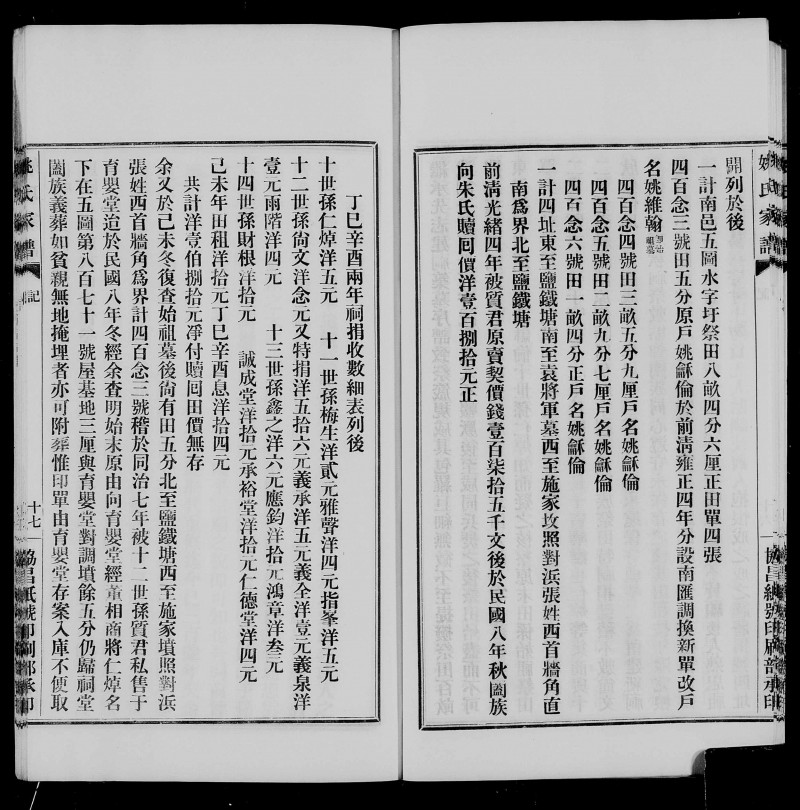 姚氏家譜
協昌紙號印刷部承印
開列於後
一計南邑五圖水字圩祭田八畝四分六厘正田單四張
四百念三號田五分原戶姚龢倫於前清雍正四年分設南匯調換新單改戶
名姚維翰
四百念四號田三畝五分九厘戶名姚龢倫
四百念五號田二畝九分七厘戶名姚龢倫
四百念六號田一畝四分正戶名姚龢倫
一計四址東至鹽鐵塘南至袁將軍墓西至施家坟照對浜張姓西首牆角直
南爲界北至鹽鐵塘
前清光緒四年被質君原賣契價錢壹百柒拾五千文後於民國八年秋闔族
向朱氏贖囘價洋壹百捌拾元正
丁巳辛酉兩年祠捐收數細表列後
十世孫仁焯洋五元 十一世孫梅生洋貳元雅聲洋四元指峯洋五元
十二世孫尙文洋念元又特捐洋五拾六元義承洋五元義全洋壹元義泉洋
壹元雨階洋四元 十三世孫鑫之洋六元應鈞洋拾元鴻章洋叁元
十四世孫財根洋拾元 誠成堂洋拾元承裕堂洋拾元仁德堂洋四元
己未年田租洋拾元丁巳辛酉息洋拾四元
共計洋壹伯捌拾元凈付贖囘田價無存
余又於己未冬復查始祖墓後尙有田五分北至鹽鐵塘西至施家墳照對浜
張姓西首牆角爲界計四百念三號稽於同治七年被十二世孫質君私售于
育嬰堂迨於民國八年冬經余查明始末原由向育嬰堂經董相商將仁焯名
下在五圖第八百七十一號屋基地三厘與育嬰堂對調墳餘五分仍歸祠堂
闔族義葬如貧親無地掩埋者亦可附葬惟印單由育嬰堂存案入庫不便取
姚氏家譜
記
十七
協昌紙號印刷部承印